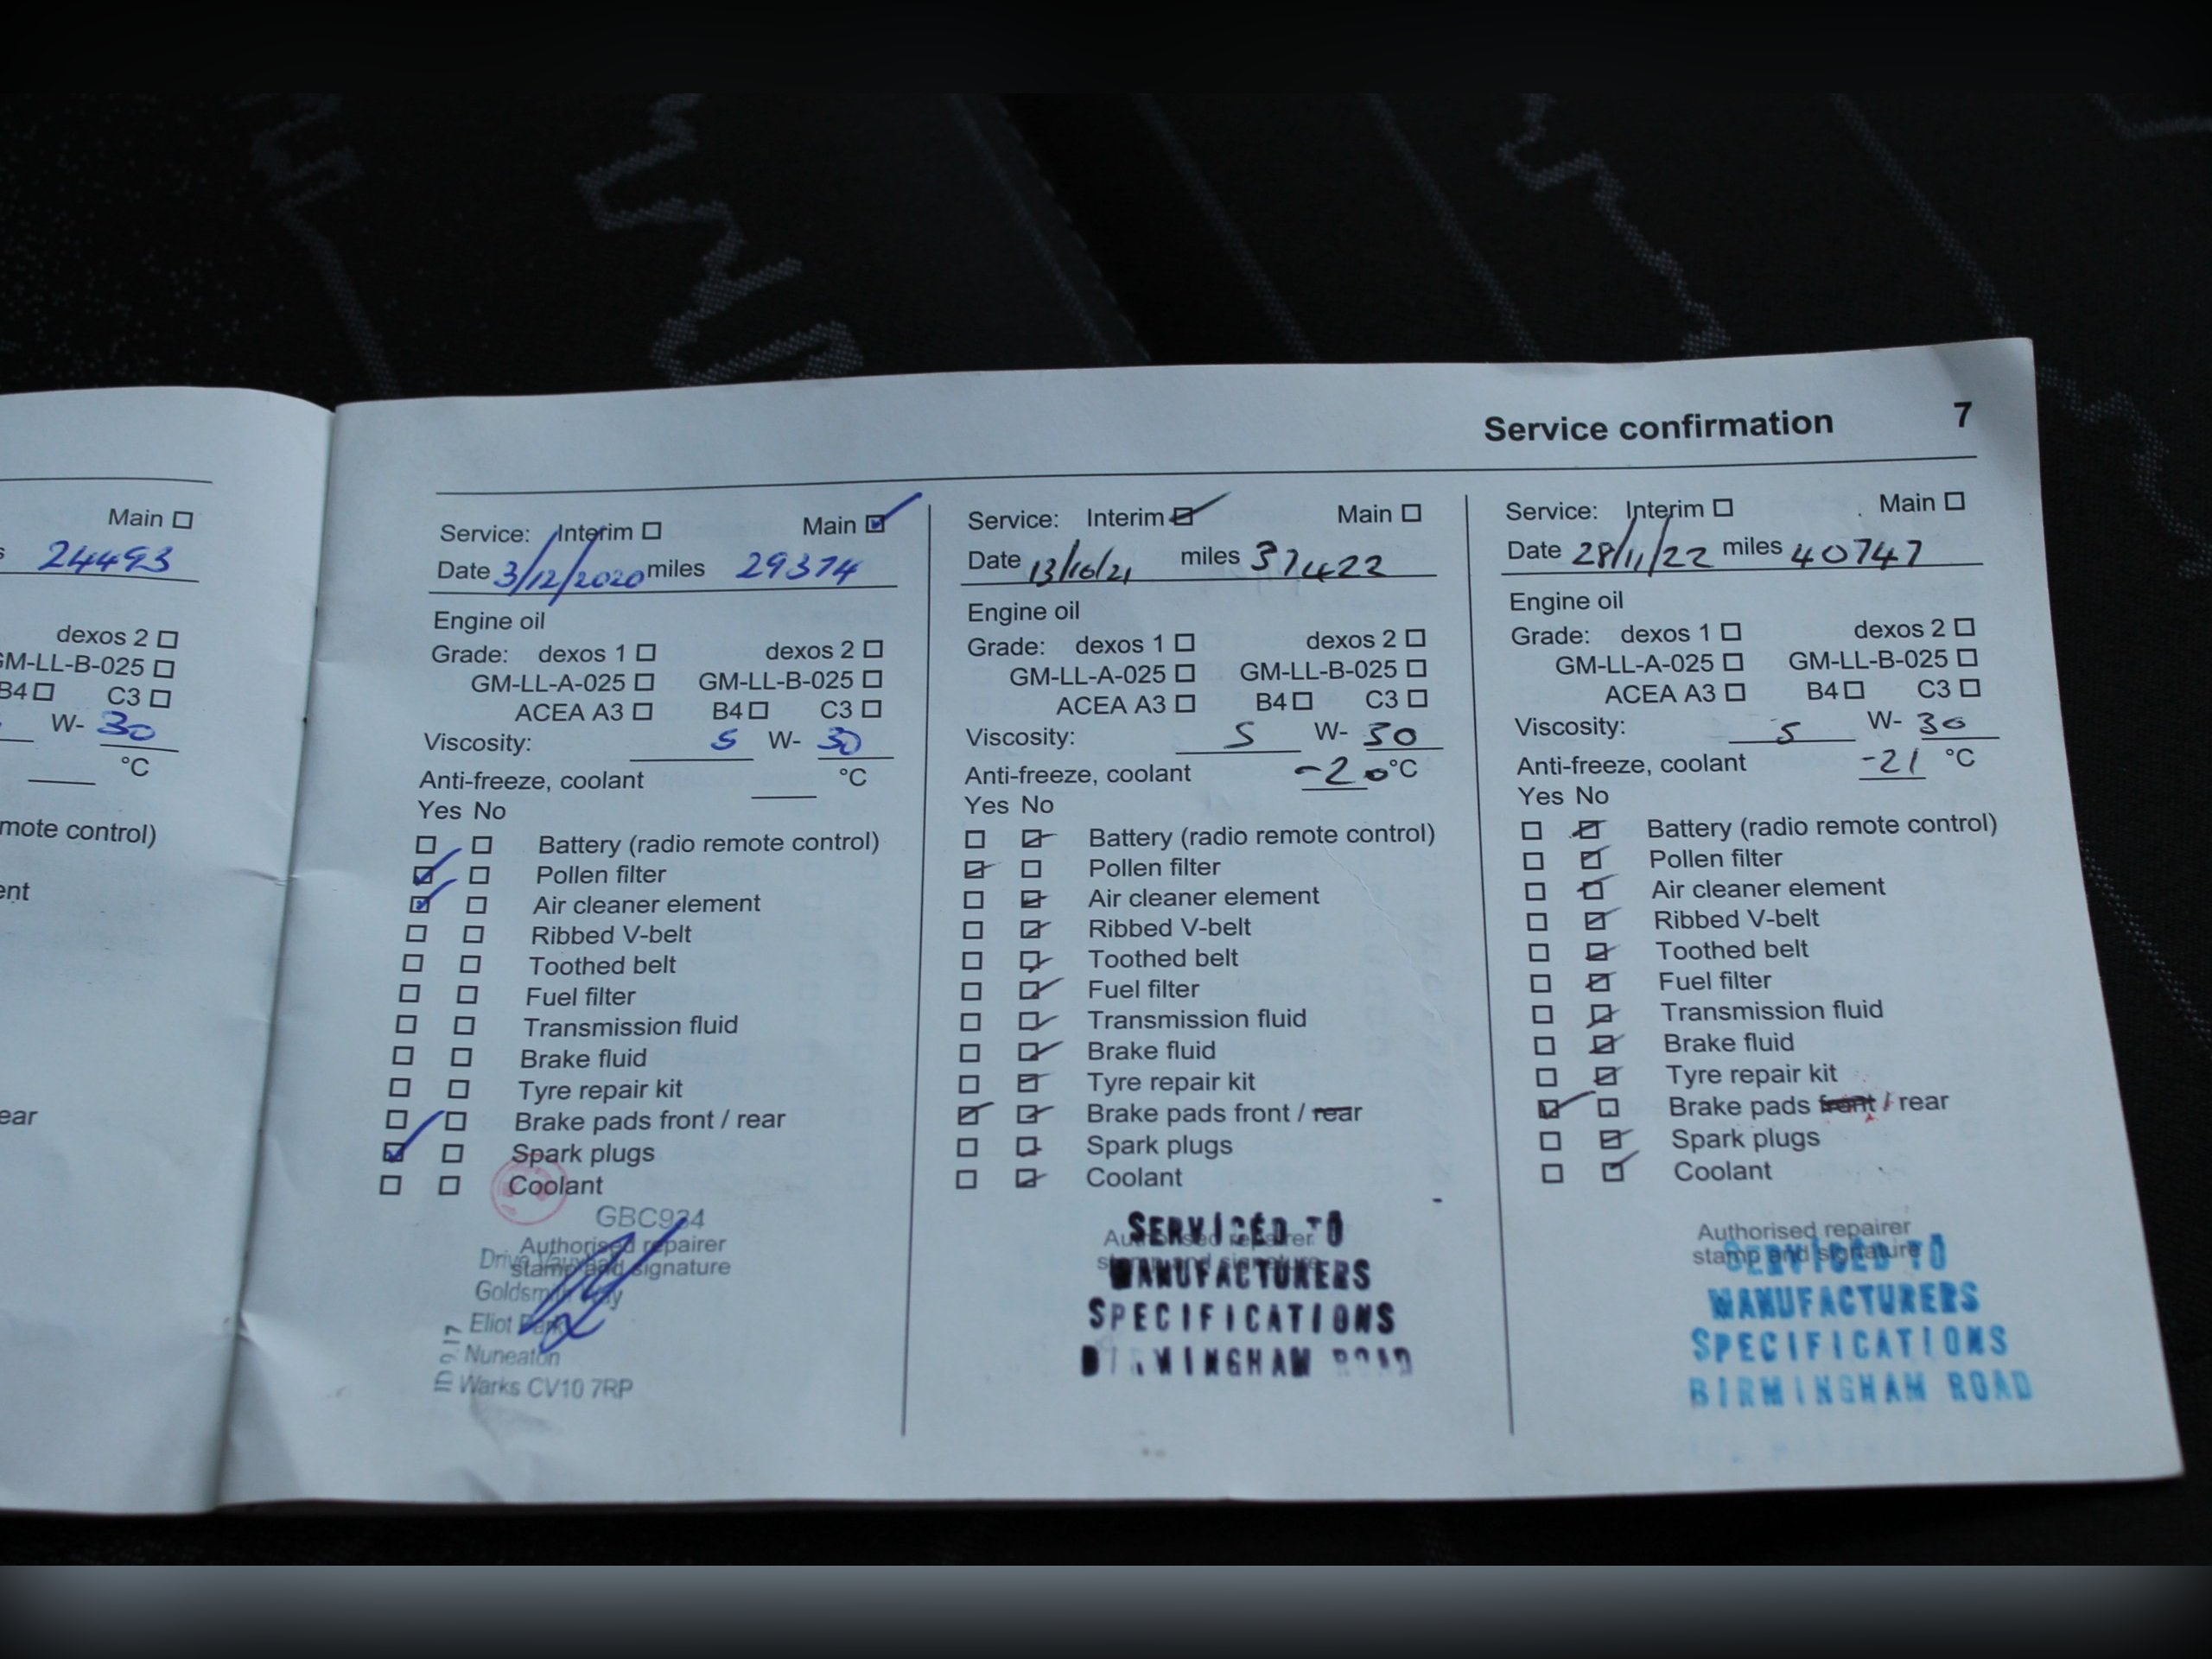 Service confirmation 7
Main
24493
dexos 2
GM-LL-B-025
B4 C3
W- 30
°C
mote control)
ent
ear
Service: Interim Main
Date 3/12/2020 miles 29374
Engine oil
Grade: dexos 1 dexos 2
GM-LL-A-025 GM-LL-B-025
ACEA A3 B4 C3
Viscosity: 5 W- 30
Anti-freeze, coolant °C
Yes No
Battery (radio remote control)
Pollen filter
Air cleaner element
Ribbed V-belt
Toothed belt
Fuel filter
Transmission fluid
Brake fluid
Tyre repair kit
Brake pads front / rear
Spark plugs
Coolant
GBC934
Authorised repairer
stamp and signature
Drive Vauxhall
Goldsmith Way
Eliot Park
Nuneaton
Warks CV10 7RP
Service: Interim Main
Date 13/10/21 miles 37422
Engine oil
Grade: dexos 1 dexos 2
GM-LL-A-025 GM-LL-B-025
ACEA A3 B4 C3
Viscosity: 5 W- 30
Anti-freeze, coolant -20 °C
Yes No
Battery (radio remote control)
Pollen filter
Air cleaner element
Ribbed V-belt
Toothed belt
Fuel filter
Transmission fluid
Brake fluid
Tyre repair kit
Brake pads front / rear
Spark plugs
Coolant
Authorised repairer
stamp and signature
SERVICED TO
MANUFACTURERS
SPECIFICATIONS
BIRMINGHAM ROAD
Service: Interim Main
Date 28/11/22 miles 40747
Engine oil
Grade: dexos 1 dexos 2
GM-LL-A-025 GM-LL-B-025
ACEA A3 B4 C3
Viscosity: 5 W- 30
Anti-freeze, coolant -21 °C
Yes No
Battery (radio remote control)
Pollen filter
Air cleaner element
Ribbed V-belt
Toothed belt
Fuel filter
Transmission fluid
Brake fluid
Tyre repair kit
Brake pads front / rear
Spark plugs
Coolant
Authorised repairer
stamp and signature
SERVICED TO
MANUFACTURERS
SPECIFICATIONS
BIRMINGHAM ROAD